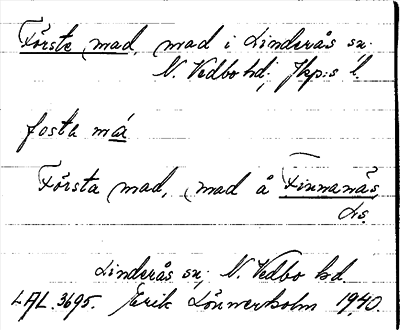 Förste mad, mad i Linderås sn.
N. Vedbo hd; Jkp:s l.
fosta má
Första mad, mad å Finnanäs
Ls.
Linderås sn; N. Vedbo hd.
LAL. 3695. Erik Lönnerholm 1940.